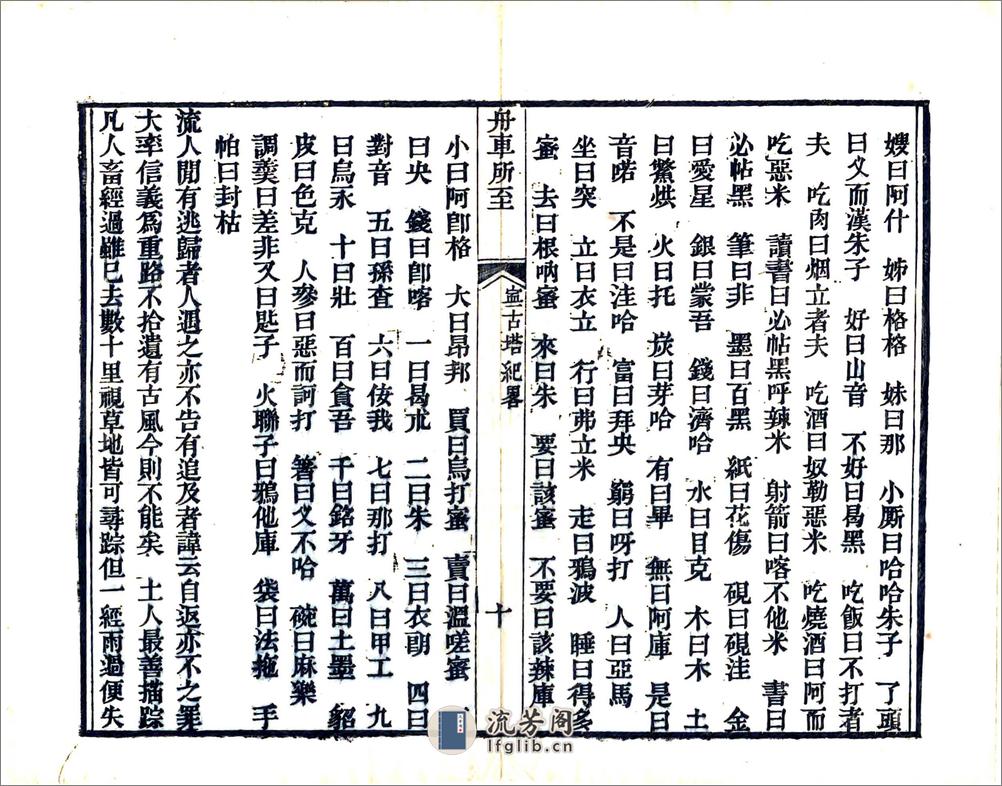 嫂曰阿什　姊曰格格　妹曰那　小厮曰哈哈朱子　了頭
曰义而漢朱子　好曰山音　不好曰曷黑　吃飯曰不打者
夫　吃肉曰烟立者夫　吃酒曰奴勒惡米　吃燒酒曰阿而
吃惡米　讀書曰必帖黑呼辣米　射箭曰喀不他米　書曰
必帖黑　筆曰非　墨曰百黑　紙曰花傷　硯曰硯洼　金
曰愛星　銀曰蒙吾　錢曰濟哈　水曰目克　木曰木　土
曰鱉烘　火曰托　炭曰芽哈　有曰畢　無曰阿庫　是曰
音喏　不是曰洼哈　富曰拜央　窮曰呀打　人曰亞馬
坐曰突　立曰衣立　行曰弗立米　走曰鴉波　睡曰得多
蜜　去曰根吶蜜　來曰朱　要曰該蜜　不要曰該辣庫
舟車所至
寧古塔紀畧
十
小曰阿卽格　大曰昂邦　買曰烏打蜜　賣曰溫嗟蜜
曰央　錢曰卽喀　一曰曷朮　二曰朱　三曰衣朗　四曰
對音　五曰孫查　六曰佞我　七曰那打　八曰甲工　九
曰烏永　十曰壯　百曰貪吾　千曰銘牙　萬曰土墨　貂
皮曰色克　人參曰惡而訶打　箸曰义不哈　碗曰麻樂
調羹曰差非又曰匙子　火聯子曰鴉他庫　袋曰法拖　手
帕曰封枯
流人閒有逃歸者人遇之亦不告有追及者諱云自返亦不之罪
大率信義爲重路不拾遺有古風今則不能矣　土人最善描踪
凡人畜經過雖已去數十里視草地皆可尋踪但一經雨過便失
流芳阁
lfglib.cn